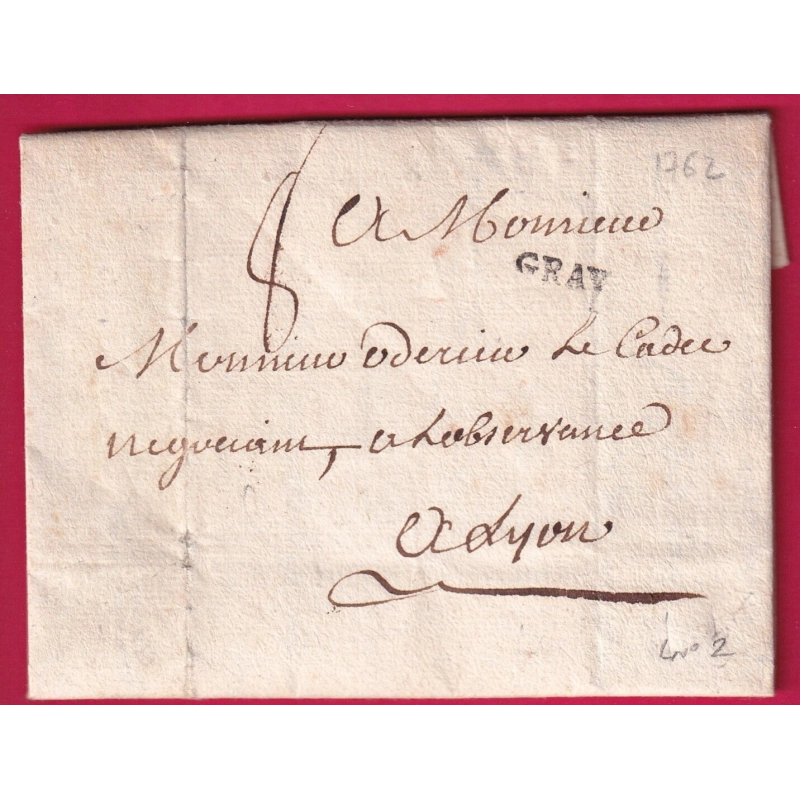 1762
8
A Monsieur
GRAY
Monsieur oderieu Le Cadee
negociant, a Lobservance
A Lyon
2